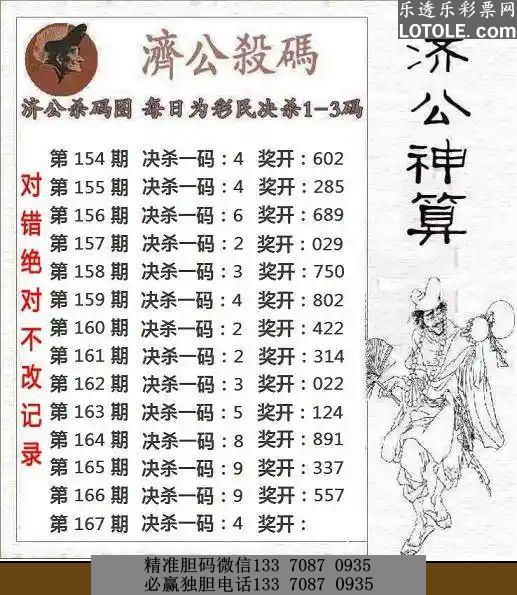 乐透乐彩票网
LOTOLE.COM
濟公殺碼
济公杀码图 每日为彩民决杀1-3码
济公神算
对错绝对不改记录
第 154 期 决杀一码:4 奖开:602
第 155 期 决杀一码:4 奖开:285
第 156 期 决杀一码:6 奖开:689
第 157 期 决杀一码:2 奖开:029
第 158 期 决杀一码:3 奖开:750
第 159 期 决杀一码:4 奖开:802
第 160 期 决杀一码:2 奖开:422
第 161 期 决杀一码:2 奖开:314
第 162 期 决杀一码:3 奖开:022
第 163 期 决杀一码:5 奖开:124
第 164 期 决杀一码:8 奖开:891
第 165 期 决杀一码:9 奖开:337
第 166 期 决杀一码:9 奖开:557
第 167 期 决杀一码:4 奖开:
精准胆码微信133 7087 0935
必赢独胆电话133 7087 0935